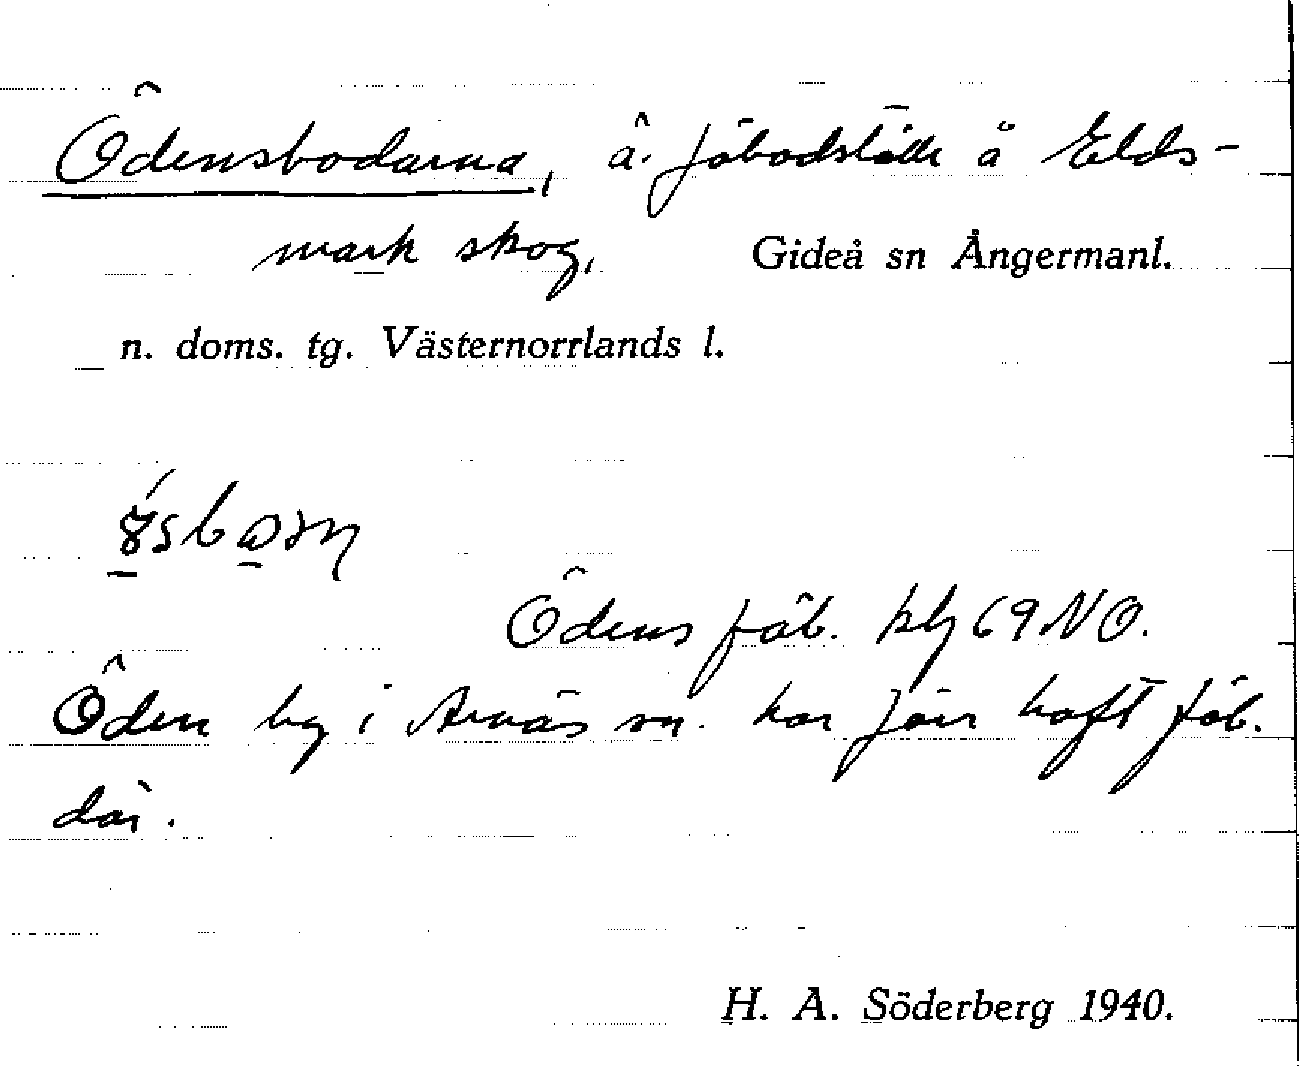 Ödensbodarna, ä. fäbodställe å Elds-
mark skog, Gideå sn Ångermanl.
n. doms. tg. Västernorrlands l.
Ödens fäb. kbl 69 NO.
Öden by i Arnäs sn. har förr haft fäb.
där.
H. A. Söderberg 1940.